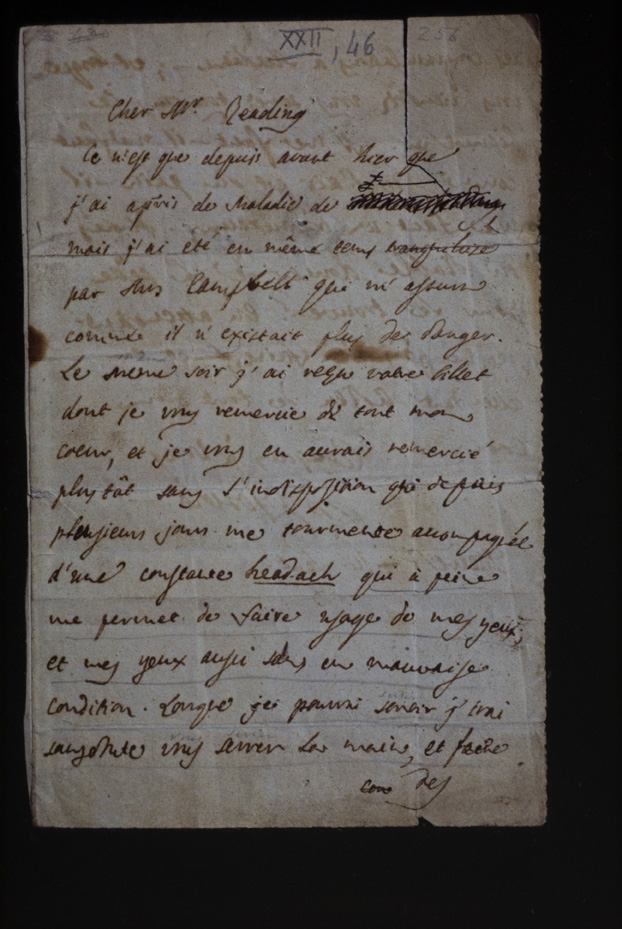 XXII, 46
256
Cher Mr. Reading
Ce n'est que depuis avant hier que
j'ai apris de Maladie de
mais j'ai eté en même tems tranquilisé
par Mrs Campbell qui m'assura
comme il n'existait plus de danger.
Le meme soir j'ai reçu votre billet
dont je vous remercie de tout mon
coeur, et je vous en aurais remercié
plus tôt sans l'indisposition qui depuis
plusieurs jours me tourmente accompagnée
d'une constante headach qui à peine
me permet de faire usage de mes yeux,
et mes yeux aussi sans en mauvaise
condition. Lorsque je pourrai sortir j'irai
sansdoute vous serrer la main, et faire
des